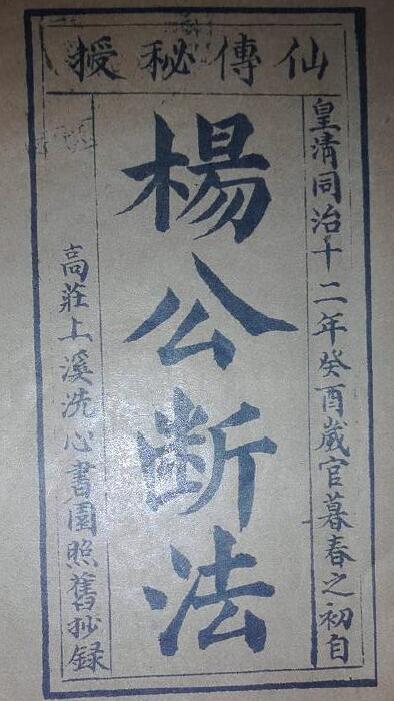 仙傳秘授
皇清同治十二年癸酉歲官暮春之初自
楊公斷法
高莊上溪洗心書園照舊抄録